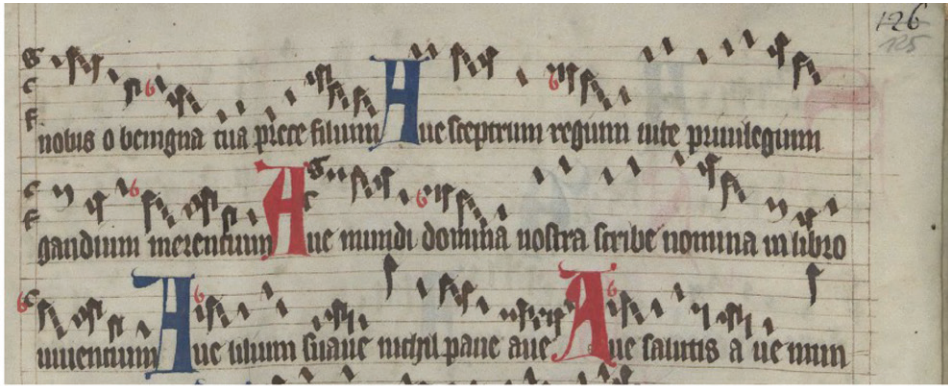 126
125
nobis o beningna tua prece filium Aue sceptrum regium uite priuilegium
gaudium merencium Aue mundi domina nostra scribe nomina in libro
uiuencium Aue lilium suaue nichil paue aue Aue salutis a ue num